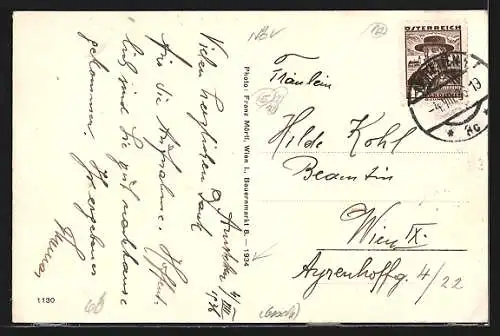 Vielen herzlichen Dank
für die Aufnahme. Hoffent-
lich sind Sie gut nachhause
gekommen. Ihr ergebener
4/VIII
1936
Photo: Franz Mörtl, Wien I., Bauernmarkt 8. — 1934
ÖSTERREICH
WIEN
Fräulein
Hilde Kohl
Beamtin
Wien IX.
Ayrenhoffg. 4/22
1130